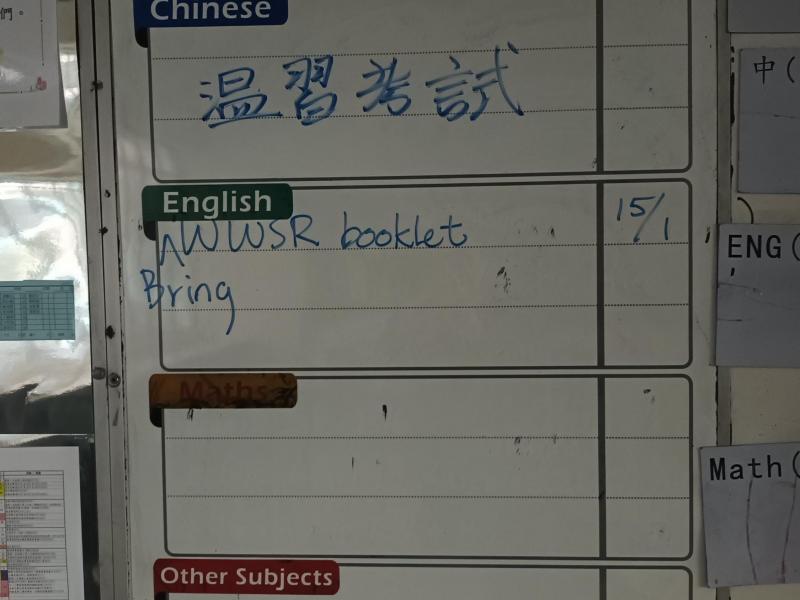 們。
Chinese
温習考試
中(
English
^WWSR booklet 15/1
Bring
ENG(
Maths
Math(
Other Subjects